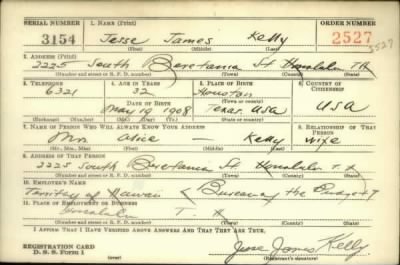 SERIAL NUMBER 1. NAME (Print) ORDER NUMBER
3154 Jesse James Kelly 2527
(First) (Middle) (Last)
2527
2. ADDRESS (Print)
2225 South Beretania St Honolulu T.H.
(Number and street or R. F. D. number) (Town) (County) (State)
3. TELEPHONE 4. AGE IN YEARS 5. PLACE OF BIRTH 6. COUNTRY OF CITIZENSHIP
6321 32 Houston
(Town or county)
DATE OF BIRTH
May 19 1908 Texas, USA USA
(Exchange) (Number) (Mo.) (Day) (Yr.) (State or country)
7. NAME OF PERSON WHO WILL ALWAYS KNOW YOUR ADDRESS 8. RELATIONSHIP OF THAT PERSON
Mrs Alice — Kelly wife
(Mr., Mrs., Miss) (First) (Middle) (Last)
9. ADDRESS OF THAT PERSON
2225 South Beretania St Honolulu T.H.
(Number and street or R. F. D. number) (Town) (County) (State)
10. EMPLOYER'S NAME
Territory of Hawaii Bureau of the Budget
11. PLACE OF EMPLOYMENT OR BUSINESS
Honolulu T.H.
(Number and street or R. F. D. number) (Town) (County) (State)
I AFFIRM THAT I HAVE VERIFIED ABOVE ANSWERS AND THAT THEY ARE TRUE.
REGISTRATION CARD
D. S. S. Form 1 Jesse James Kelly
(Registrant's signature)